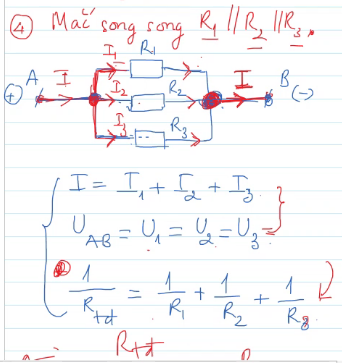 ④ Mắc song song R₁ // R₂ // R₃.
I₁ R₁
A I I₂ R₂ I B
(+) (-)
I₃ R₃
I = I₁ + I₂ + I₃
U_AB = U₁ = U₂ = U₃ =
1/R_tđ = 1/R₁ + 1/R₂ + 1/R₃
R_tđ